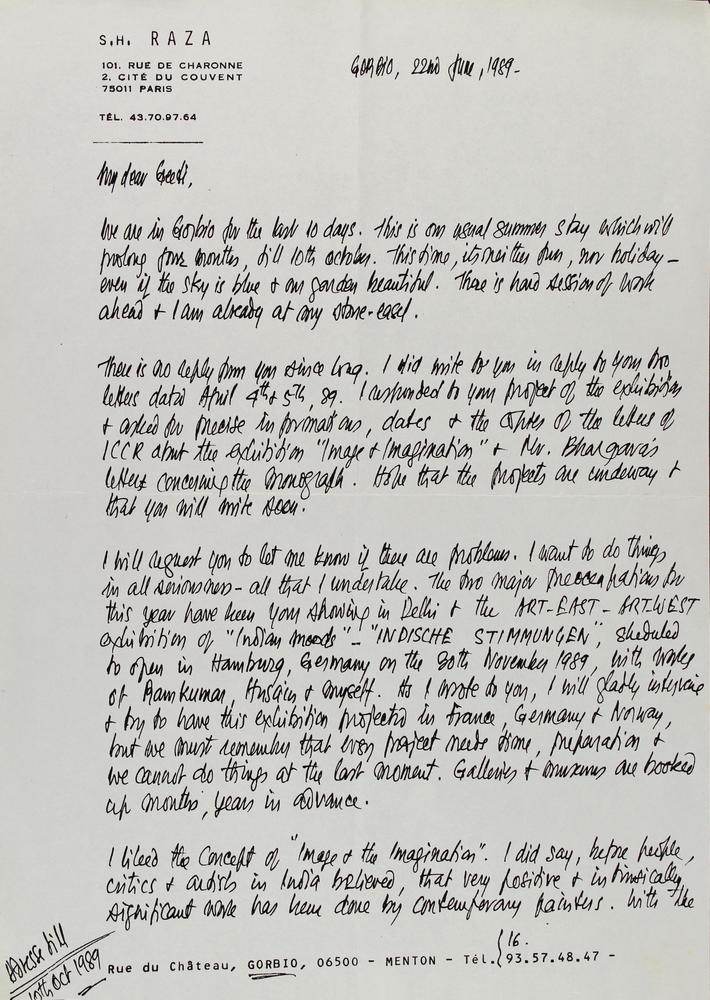 S.H. RAZA
101. RUE DE CHARONNE
2. CITÉ DU COUVENT
75011 PARIS
TÉL. 43.70.97.64
GORBIO, 22nd June, 1989-
My dear Geeti,
We are in Gorbio for the last 10 days. This is our usual summer stay which will
prolong four months, till 10th october. This time, its neither fun, nor holiday-
even if the sky is blue & our garden beautiful. There is hard session of work
ahead & I am already at my stone-easel.
There is no reply from you since long. I did write to you in reply to your two
letters dated April 4th & 5th, 89. I responded to your project of the exhibition
& asked for precise informations, dates & the copies of the letters of
ICCR about the exhibition "Image & Imagination" & Mr. Bhargava's
letters concerning the monograph. Hope that the projects are underway &
that you will write soon.
I will request you to let me know if there are problems. I want to do things
in all seriousness - all that I undertake. The two major preoccupations for
this year have been your showing in Delhi & the ART-EAST-ARTWEST
exhibition of "Indian moods" - "INDISCHE STIMMUNGEN", sheduled
to open in Hamburg, Germany on the 30th November 1989, with works
of Ramkumar, Husain & myself. As I wrote to you, I will gladly intervine
& try to have this exhibition projected in France, Germany & Norway,
but we must remember that every project needs time, preparation &
we cannot do things at the last moment. Galleries & museums are booked
up months, years in advance.
I liked the Concept of "Image & the Imagination". I did say, before people,
critics & artists in India believed, that very positive & intrinsically
significant work has been done by contemporary painters. With the
Adresse till
10th Oct 1989
16.
Rue du Château, GORBIO, 06500 - MENTON - Tél. 93.57.48.47 -